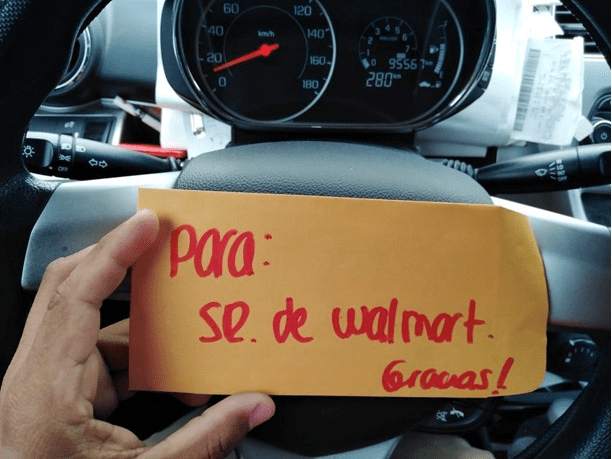 60
80
100
120
140
160
180
40
20
0
km/h
95567
280km
Para:
SR. de walmart.
Gracias!